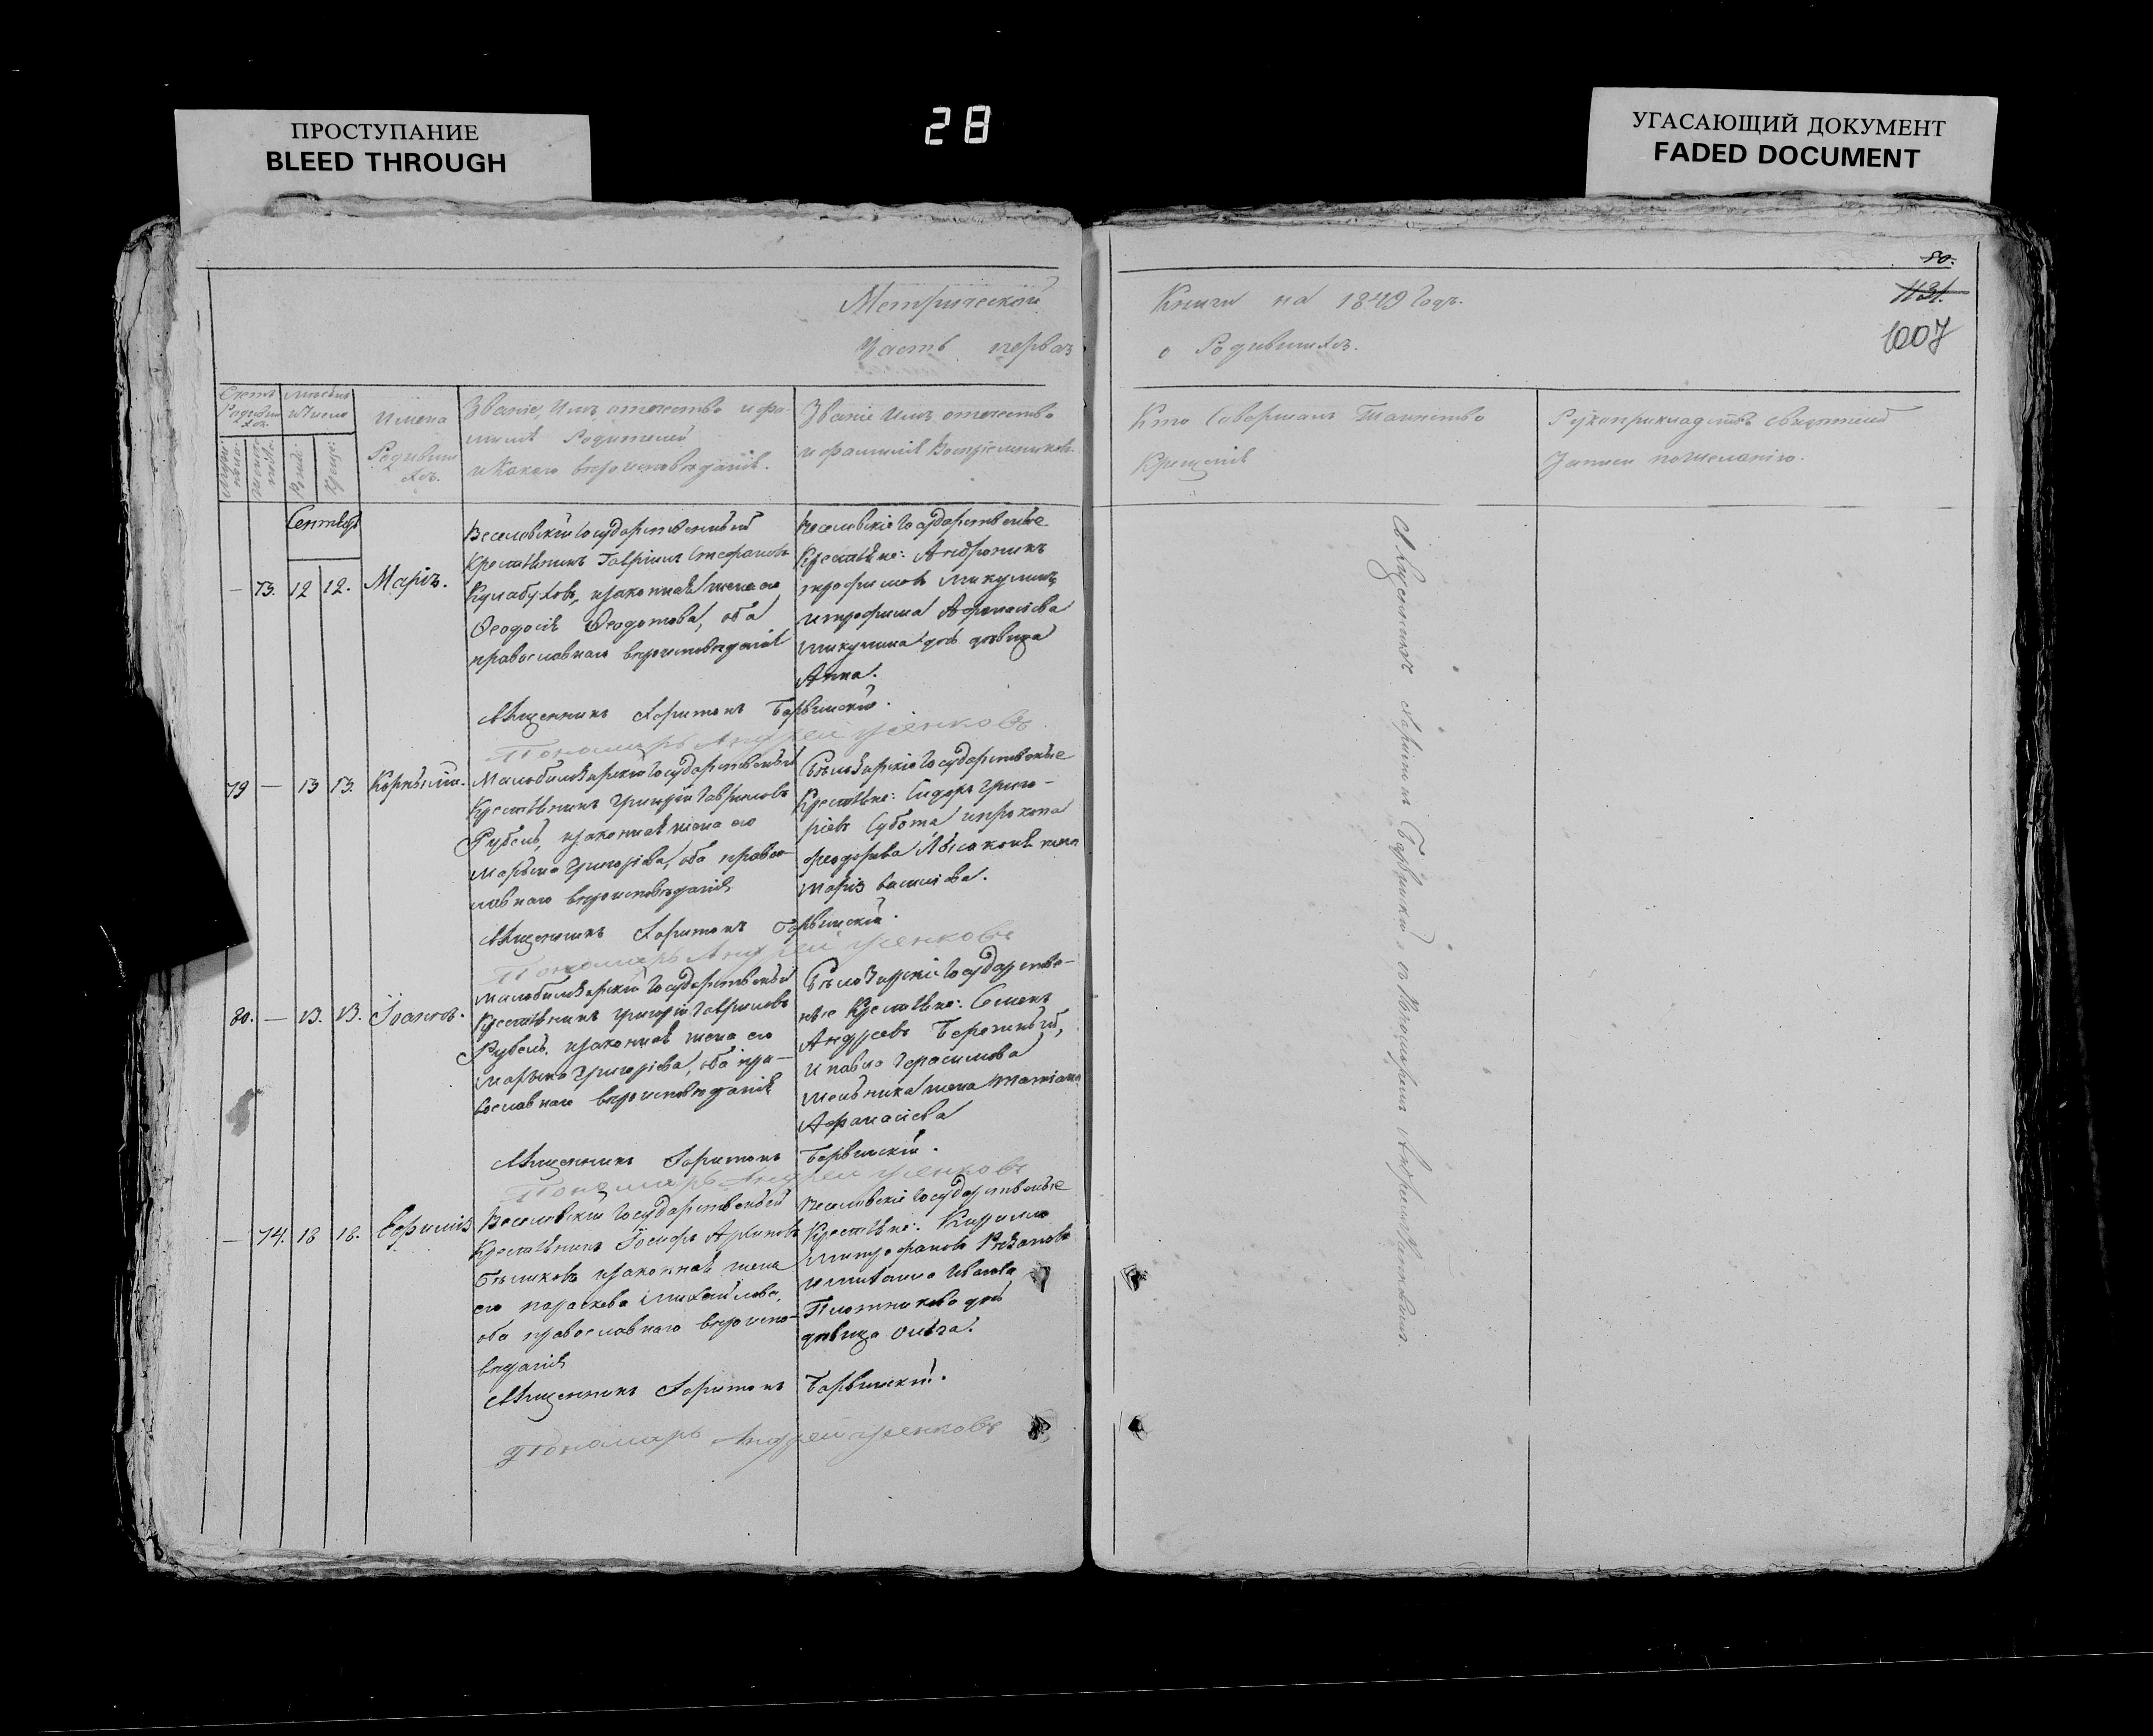 28
ПРОСТУПАНИЕ
BLEED THROUGH
УГАСАЮЩИЙ ДОКУМЕНТ
FADED DOCUMENT
50.
1131.
1007
Метрической
Часть первая
Книги на 1849 годъ.
о Родившихся.
Счетъ Родившихся.
Мѣсяцъ и Число
Имена Родившихся.
Званіе, Имя, отчество и фамилія Родителей и Какого вѣроисповѣданія.
Званіе Имя отчество и фамилія Воспріемниковъ.
Кто Совершалъ Таинство
Крещенія
Рукоприкладство свидѣтелей
Записи по желанію.
Сентябрь
— 73. 12 12. Марія.
Веселовскій Государственный
Крестьянинъ Гавріилъ Стефановъ
законная жена его
Ѳеодосія Ѳеодотова, оба
православнаго вѣроисповѣданія
Веселовскіе Государственные
Крестьяне: Андроникъ
Трофимовъ Микулинъ,
и трофима Афанасіева
Микулина дочь дѣвица
Анна.
Священникъ Харитонъ Барвинскій.
Пономарь Андрей Усенковъ
79 — 13 13. Корнилій.
Государственный
Крестьянинъ Григорій Гавриловъ
Рубель, законная жена его
Марѳа Григоріева, оба право-
славнаго вѣроисповѣданія
Государственные
Крестьяне: Сидоръ Григо-
ріевъ Субота и прокопа
феодорова жена
Марія Васильева.
Священникъ Харитонъ Барвинскій.
Пономарь Андрей Усенковъ
80. — 13. 13. Іоаннъ.
Государственный
Крестьянинъ Григорій Гавриловъ
Рубель, законная жена его
Марѳа Григоріева, оба пра-
вославнаго вѣроисповѣданія
Государствен-
ные Крестьяне: Семенъ
Андреевъ Бережный,
и павла Герасимова
Мельника жена Татіана
Афанасіева
Священникъ Харитонъ Барвинскій.
Пономарь Андрей Усенковъ
— 74. 18 18. Евфимія
Веселовскій Государственный
Крестьянинъ Іосифъ
Бѣликовъ законная жена
его параскева Михайлова,
оба православнаго вѣроиспо-
вѣданія
Веселовскіе Государственные
Крестьяне: Кирилла
Митрофановъ
Иванова
Плотникова дочь
дѣвица Ольга.
Священникъ Харитонъ Барвинскій.
Пономарь Андрей Усенковъ
Священникъ Харитонъ Барвинскій съ